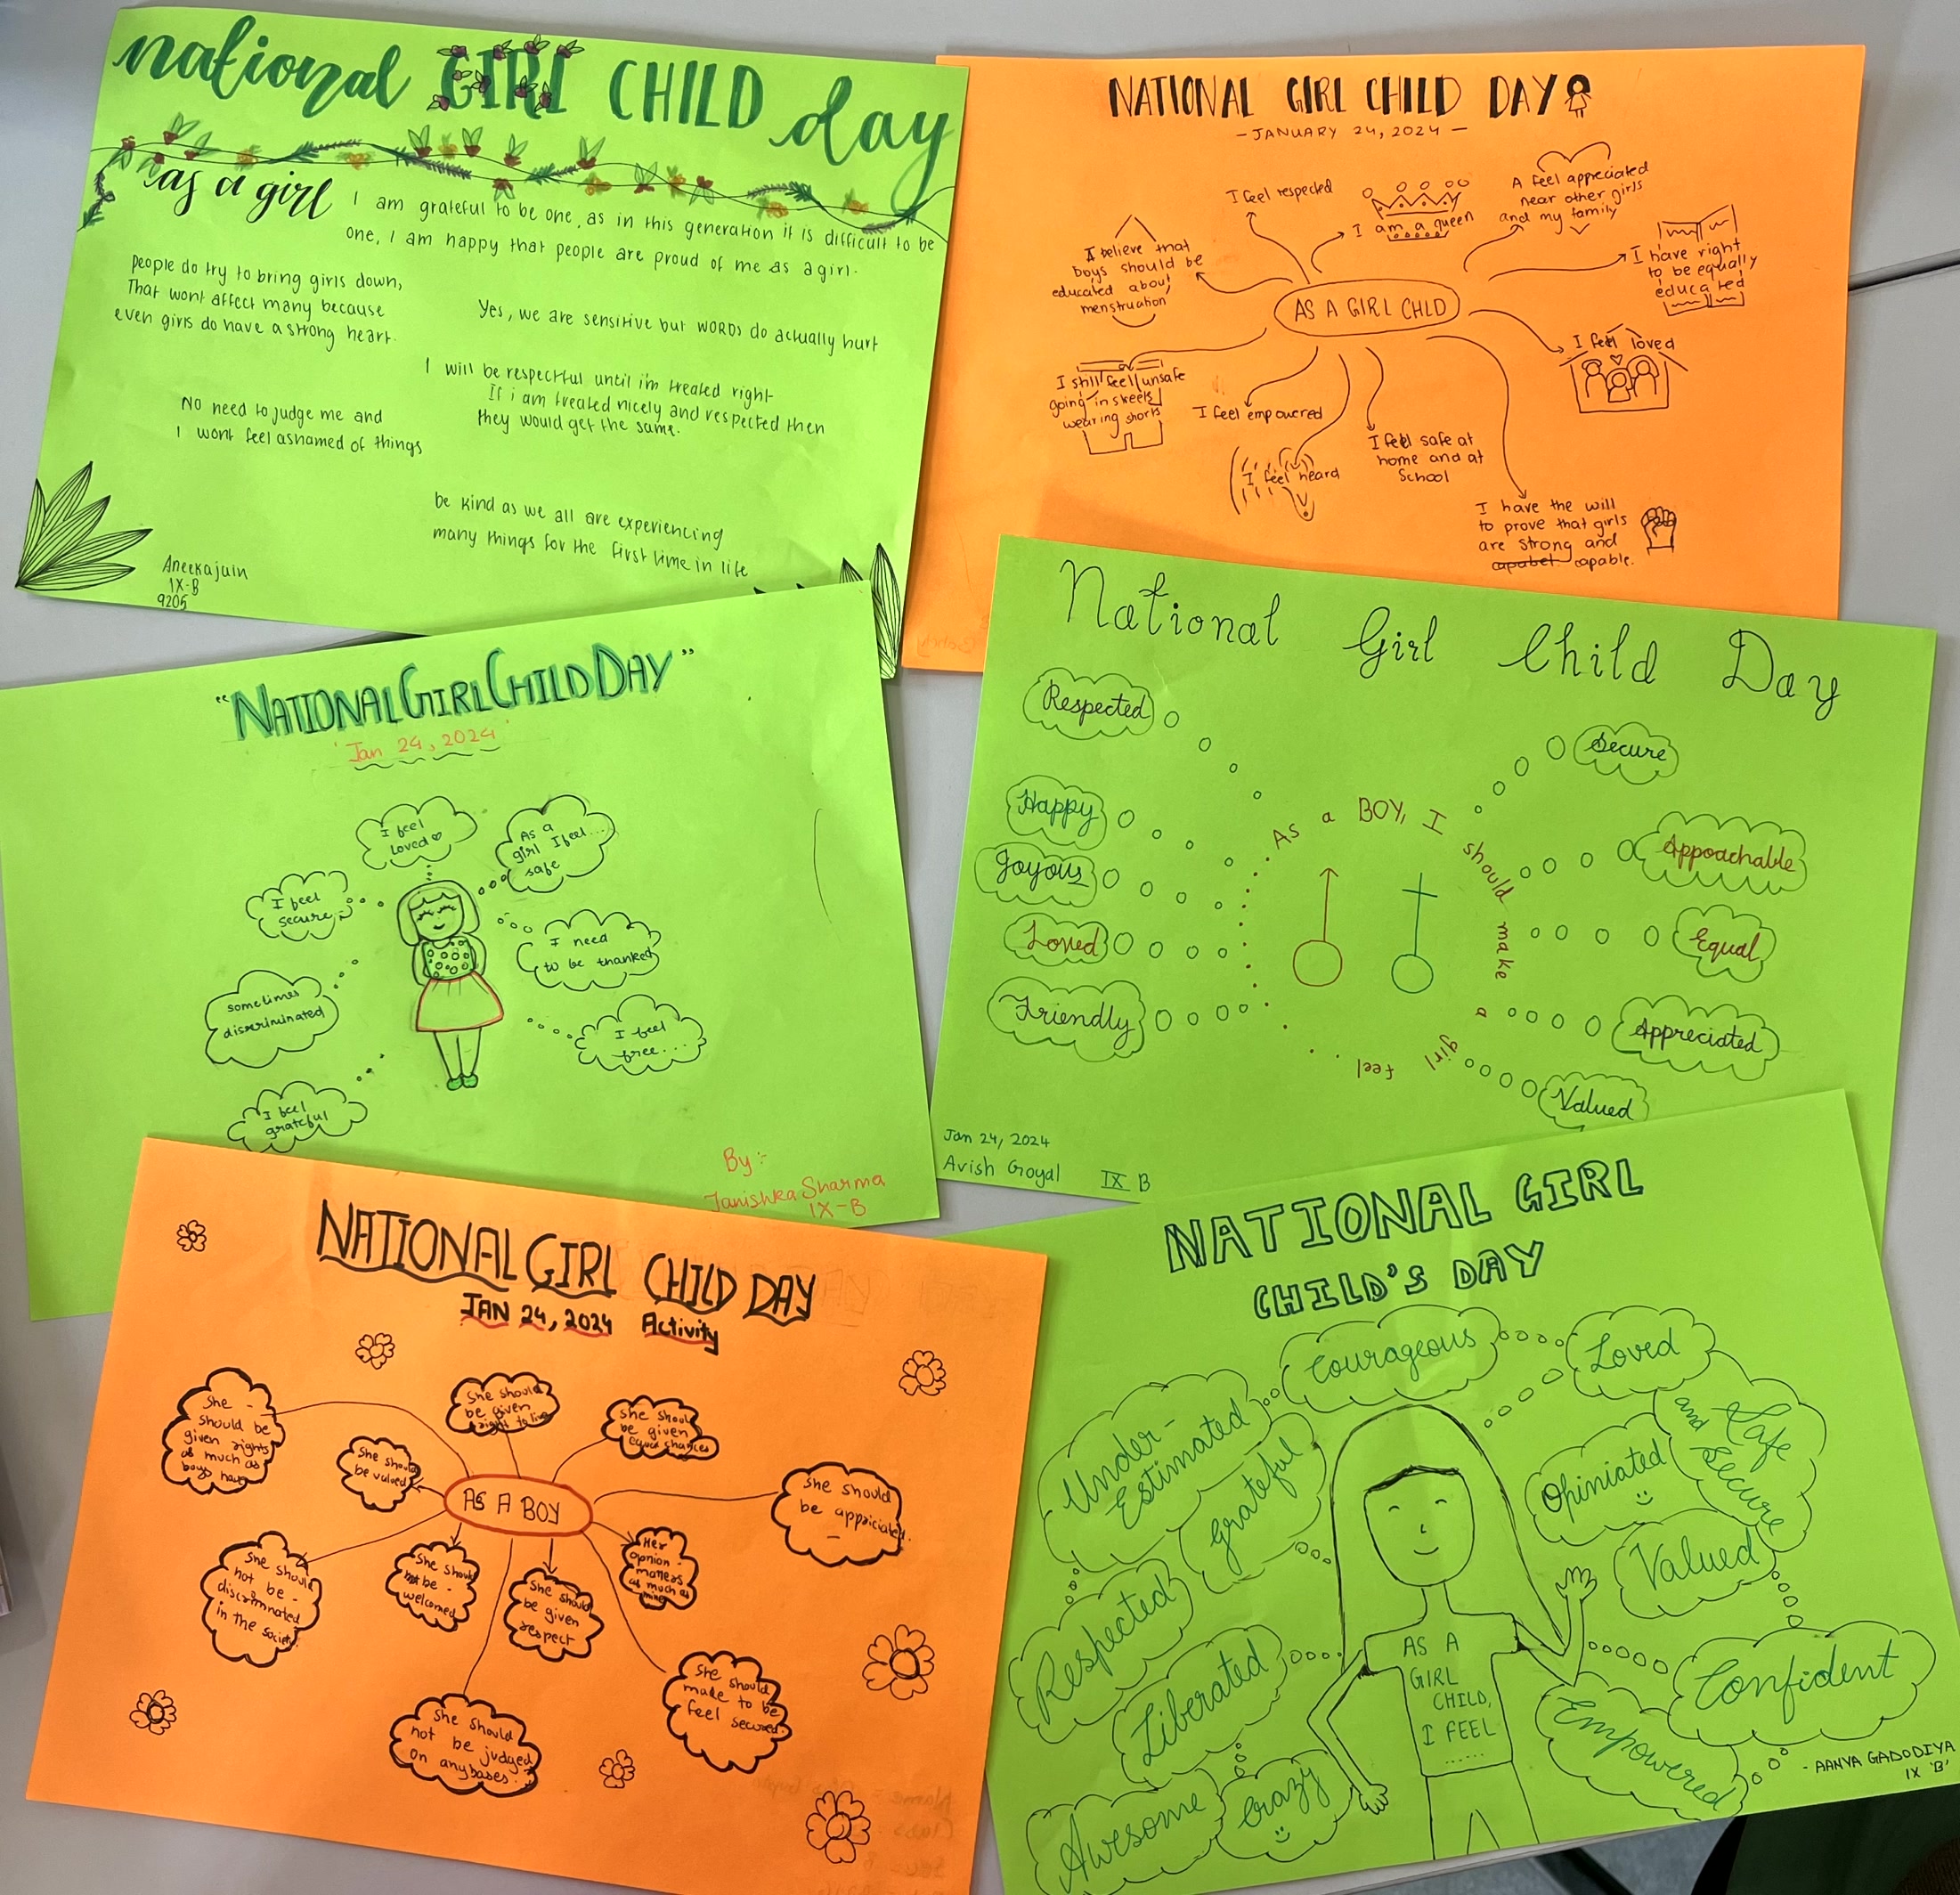 national GIRL CHILD day
as a girl
I am grateful to be one, as in this generation it is difficult to be
one, I am happy that people are proud of me as a girl.
people do try to bring girls down,
That wont affect many because
even girls do have a strong heart.
Yes, we are sensitive but WORDs do actually hurt
I will be respectful until i'm treated right
If i am treated nicely and respected then
they would get the same.
No need to judge me and
I wont feel ashamed of things
be kind as we all are experiencing
many things for the first time in life
Aneekajain
IX-B
9205
NATIONAL GIRL CHILD DAY
- JANUARY 24, 2024 -
I feel respected
I am a queen
A feel appreciated
near other girls
and my family
I believe that
boys should be
educated about
menstruation
I have right
to be equally
educated
AS A GIRL CHLD
I feel loved
I still feel unsafe
going in streets
wearing shorts
I feel empowered
I feel heard
I feel safe at
home and at
School
I have the will
to prove that girls
are strong and
capabel capable.
"NATIONAL GIRL CHILD DAY"
Jan 24, 2024
I feel
loved
As a
girl I feel...
safe
I feel
secure
I need
to be thanked
sometimes
discriminated
I feel
free....
I feel
grateful
By:-
Tanishka Sharma
IX-B
National Girl Child Day
Respected
Secure
Happy
As a BOY, I should make a girl feel
Appoachable
Joyous
Loved
Equal
Friendly
Appreciated
Valued
Jan 24, 2024
Avish Goyal IX B
NATIONAL GIRL CHILD DAY
JAN 24, 2024 Activity
She
should be
given rights
as much as
boys have
She should
be given
right to live
She should
be given
equal chances
She should
be valued
AS A BOY
She should
be appriciated.
She should
not be
discriminated
in the society
She should
be
welcomed
She should
be given
respect
Her
opnion
matters
as much as
mine
She should
made to be
feel secured.
She should
not be judged
on any bases.
NATIONAL GIRL
CHILD'S DAY
Courageous
Loved
Under-
Estimated
Grateful
Safe
and Secure
Opiniated
Valued
Respected
Liberated
AS A
GIRL
CHILD,
I FEEL
......
Confident
Empowered
Awesome
Crazy
- AANYA GADODIYA
IX 'B'